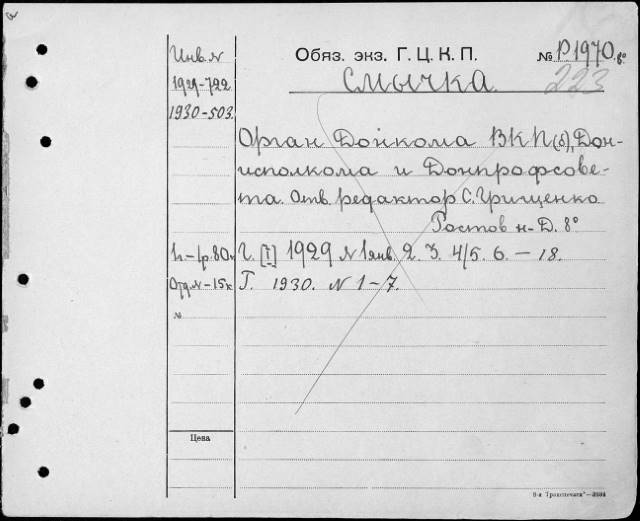 а
Инв. №
1929-722
1930-503.
Обяз. экз. Г. Ц. К. П.
№ Р1970. 8°
223
СМЫЧКА.
Орган Донкома ВКП(б), Дон-
исполкома и Донпрофсове-
та. Отв. редактор С. Грищенко
Ростов н-Д. 8°
1г.-1р.80к
Г. [I] 1929 № 1 янв. 2. 3. 4/5. 6. — 18.
Отд.№-15к
Г. 1930. № 1-7.
№
Цена